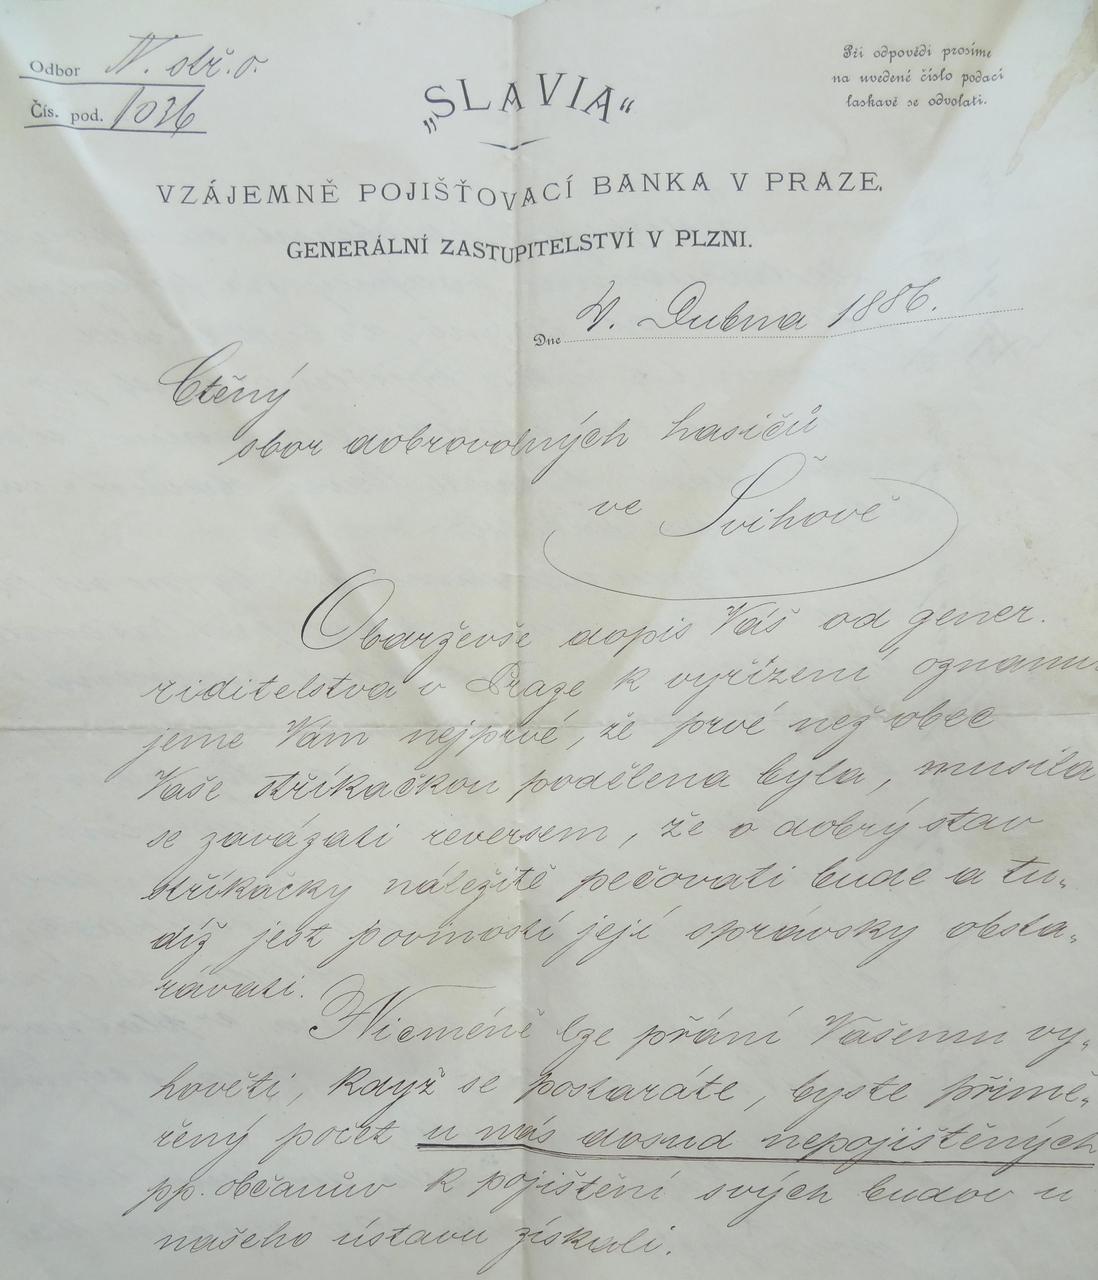 Odbor N. stř. o.
Čís. pod. 1036
Při odpovědi prosíme
na uvedené číslo podací
laskavě se odvolati.
„SLAVIA“
VZÁJEMNĚ POJIŠŤOVACÍ BANKA V PRAZE.
GENERÁLNÍ ZASTUPITELSTVÍ V PLZNI.
Dne 4. Dubna 1886.
Ctěný
sbor dobrovolných hasičů
ve Švihově
Obdrževše dopis Váš od gener.
riditelstva v Praze k vyřízení, oznamu-
jeme Vám nejprvé, že prvé než obec
Vaše stříkačkou podělena byla, musila
se zavázati reversem, že o dobrý stav
stříkačky náležitě pečovati bude a tu-
díž jest povinností její správsky obsta-
rávati.
Nicméně lze přání Vašemu vy-
hověti, když se postaráte, byste přimě-
řený počet u nás dosud nepojištěných
pp. občanův k pojištění svých budov u
našeho ústavu získali.